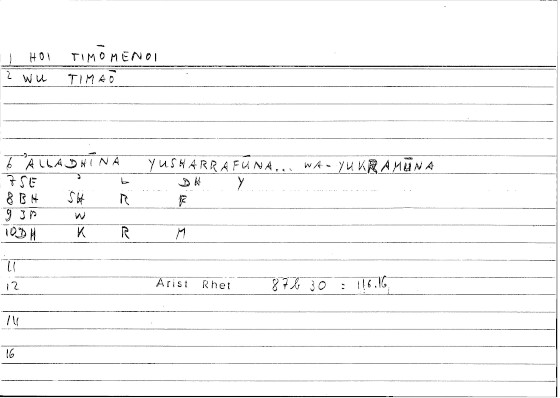 1 HOI TIMŌMENOI
2 WU TIMAŌ
6 'ALLADHĪNA YUSHARRAFŪNA... WA-YUKRAMŪNA
7 SE ' L DH Y
8 BH SH R F
9 3P W
10 DH K R M
11
12 Arist Rhet 87b 30 : 116.16
14
16